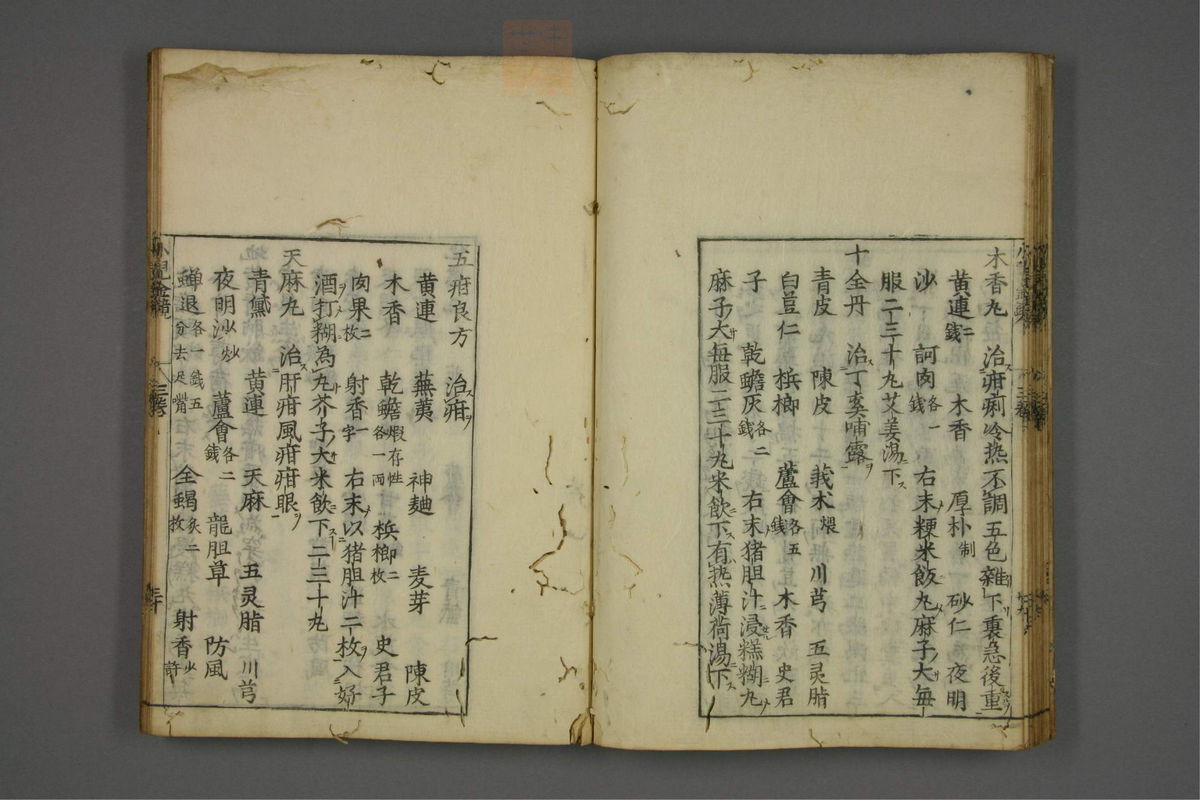 木香丸 治疳痢冷热不調五色雜下裏急後重
黄連二錢 木香 厚朴制 砂仁 夜明
沙 訶肉各一錢 右末粳米飯丸麻子大每
服二三十丸艾姜湯下
十全丹 治丁奚哺露
青皮 陳皮 莪术煨 川芎 五灵脂
白荳仁 梹榔 蘆會各五錢 木香 史君
子 乾蟾灰各二錢 右末猪胆汁浸糕糊丸
麻子大每服二三十丸米飲下有热薄荷湯下
五疳良方 治疳
黄連 蕪荑 神麯 麦芽 陳皮
木香 乾蟾煆存性各一両 梹榔二枚 史君子
肉果二枚 射香一字 右末以猪胆汁二枚入好
酒打糊為丸芥子大米飲下二三十丸
天麻丸 治肝疳風疳疳眼
青黛 黄連 天麻 五灵脂 川芎
夜明沙炒 蘆會各二錢 龍胆草 防風
蟬退各一錢五分去足嘴 全蝎炙二枚 射香少許